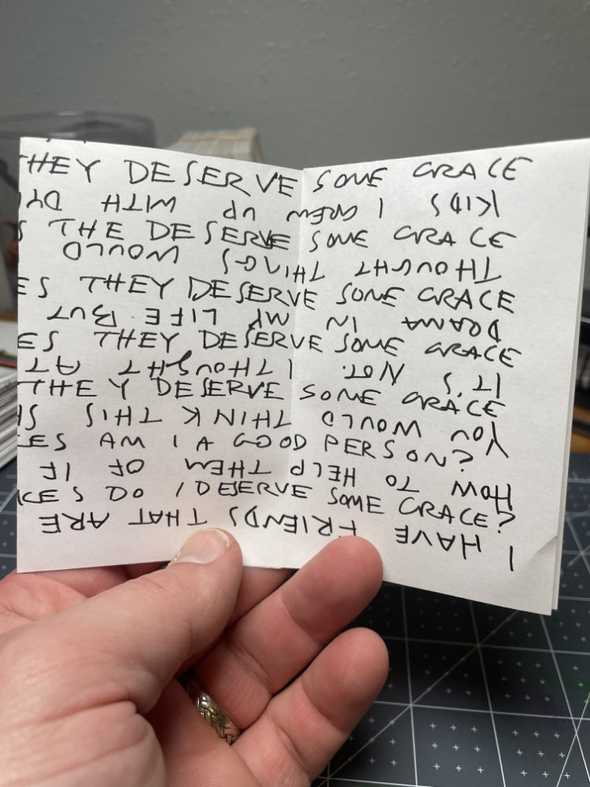 THEY DESERVE SOME GRACE
S THE DESERVE SOME GRACE
ES THEY DESERVE SOME GRACE
ES THEY DESERVE SOME GRACE
THEY DESERVE SOME GRACE
ES AM I A GOOD PERSON?
CES DO I DESERVE SOME GRACE?
I HAVE FRIENDS THAT ARE
HOW TO HELP THEM OF IF
YOU WOULD THINK THIS
IT'S NOT. I THOUGHT AT
DRAMA IN MY LIFE. BUT
THOUGHT THINGS WOULD
KIDS I GREW UP WITH